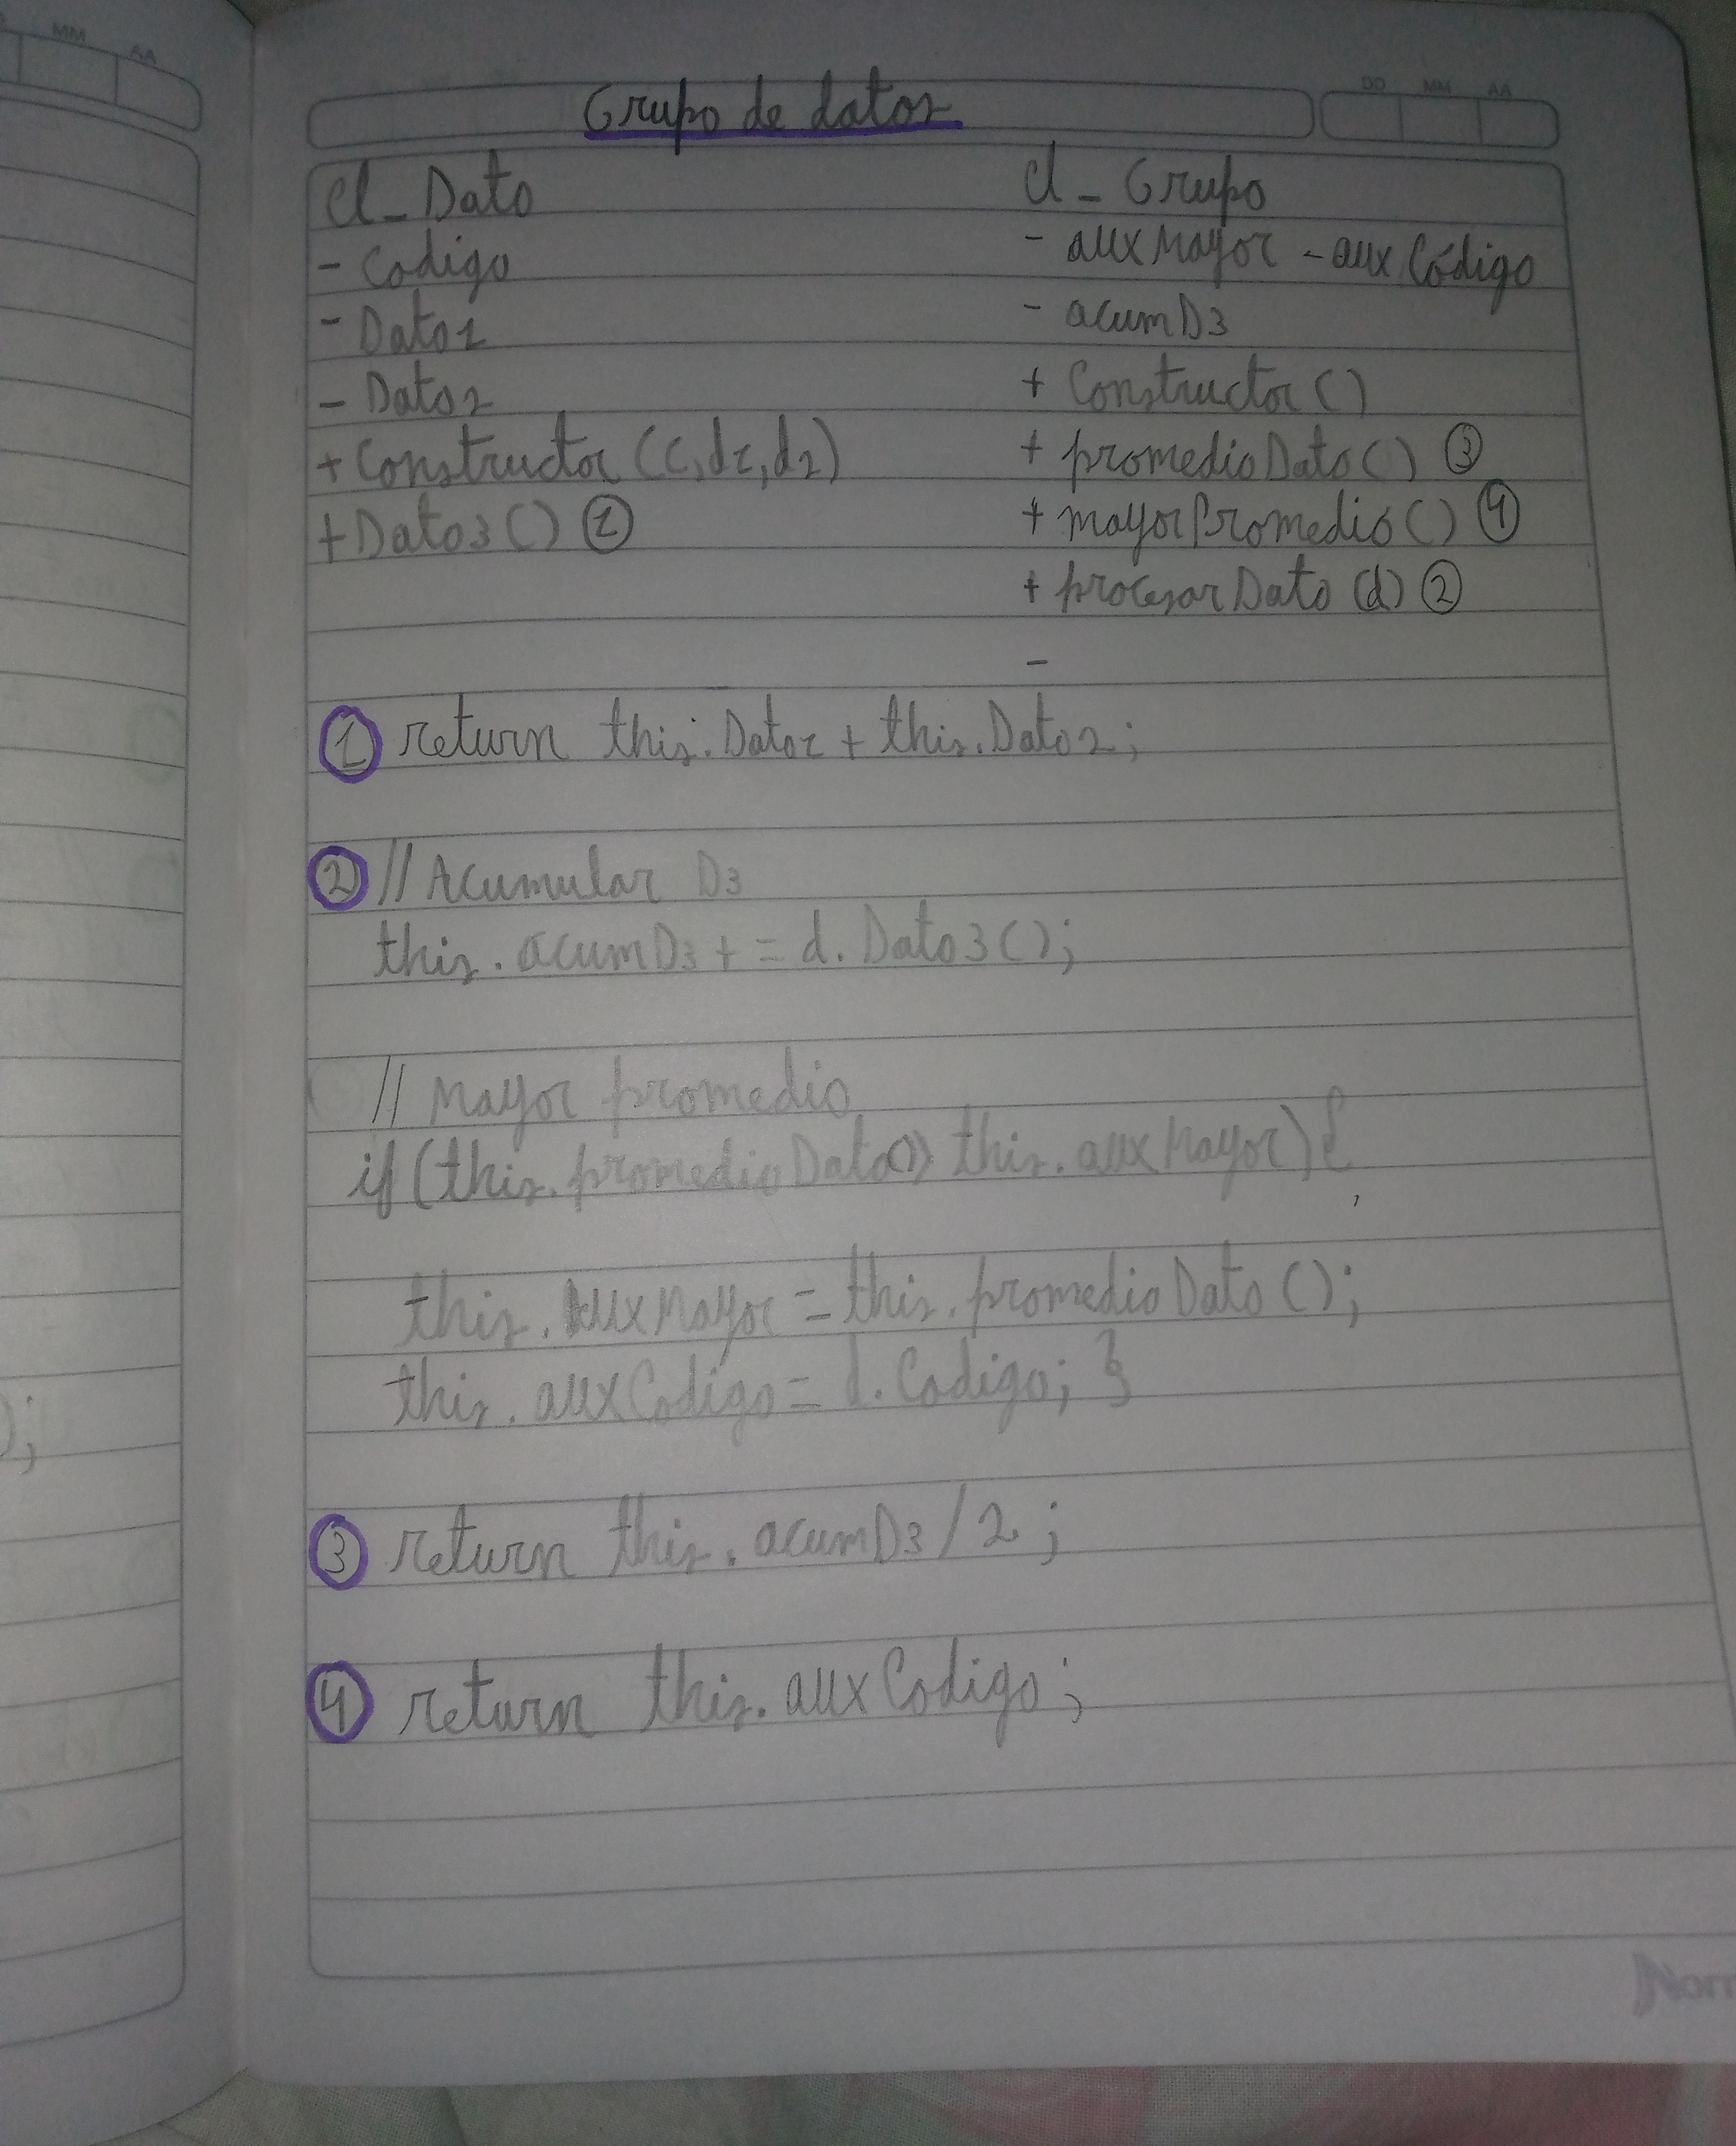 MM AA
DD MM AA
Grupo de datos
Cl_Dato
- Codigo
- Dato1
- Dato2
+ Constructor (c,d1,d2)
+ Dato3() ①
Cl_Grupo
- auxMayor - auxCódigo
- acumD3
+ Constructor()
+ promedioDato() ③
+ mayorPromedio() ④
+ procesarDato (d) ②
-
① return this.Dato1 + this.Dato2;
② // Acumular D3
this.acumD3 += d.Dato3();
// Mayor promedio
if (this.promedioDato()> this.auxMayor) {
this.auxMayor = this.promedioDato();
this.auxCodigo = d.Codigo; }
③ return this.acumD3/2;
④ return this.auxCodigo;
);
Norm